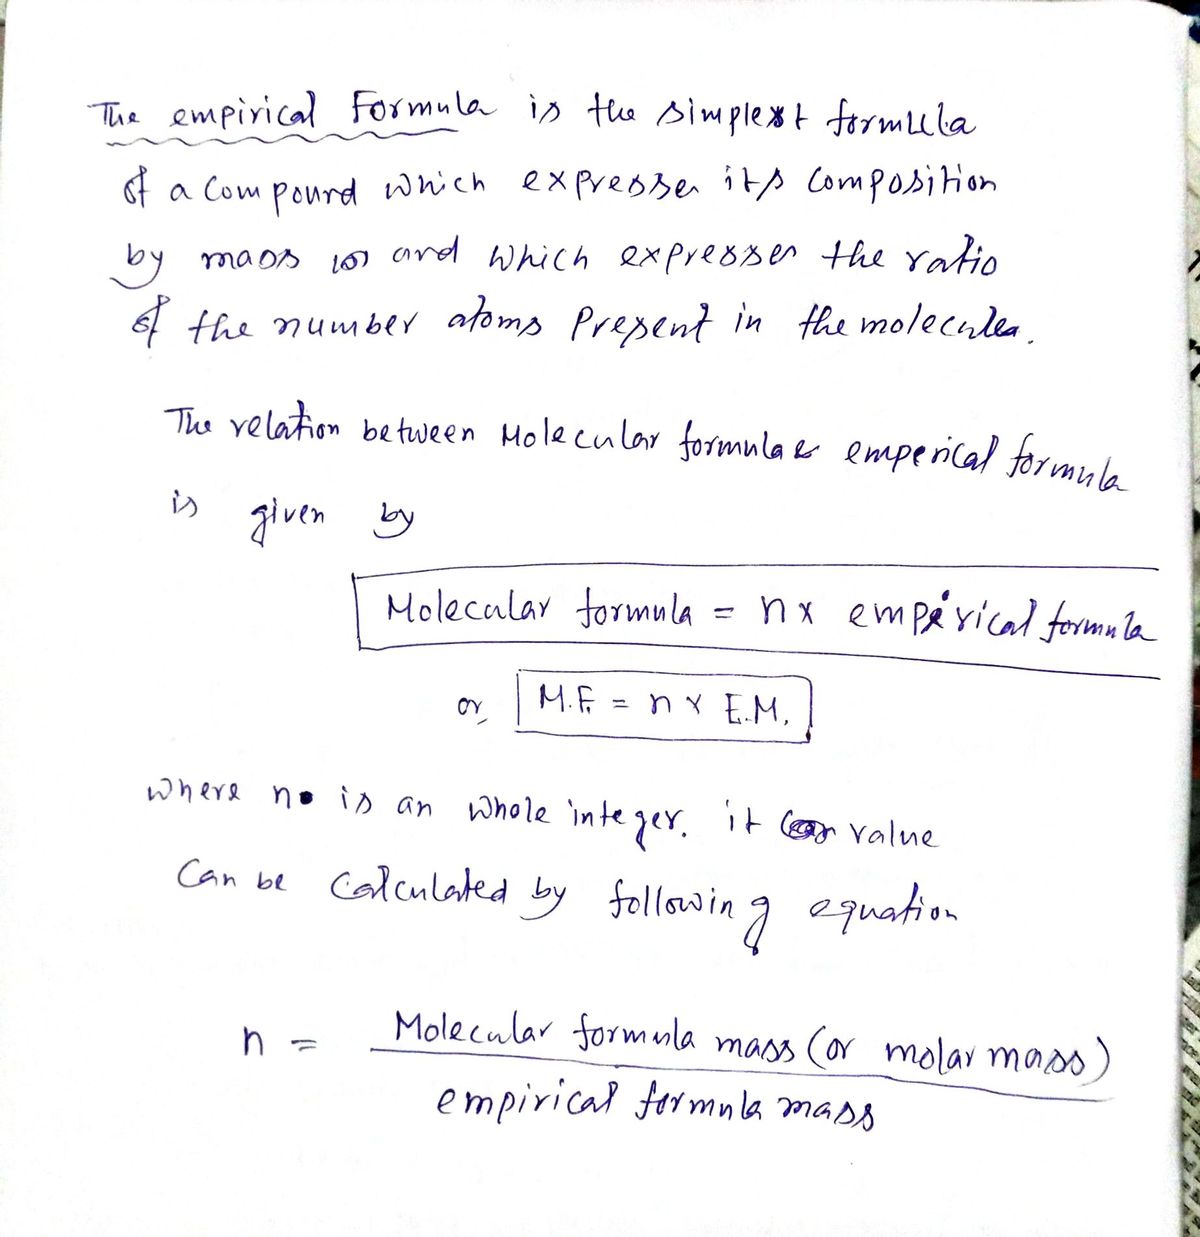 The empirical Formula is the simplest formula
of a compound which expresses its composition
by mass and which expresses the ratio
of the number atoms present in the molecules.
The relation between Molecular formula & emperical formula
is given by
Molecular formula = n x empirical formula
or, M.F. = n x E.M.
where n is an whole integer. it value
Can be Calculated by following equation
n = Molecular formula mass (or molar mass)
empirical formula mass